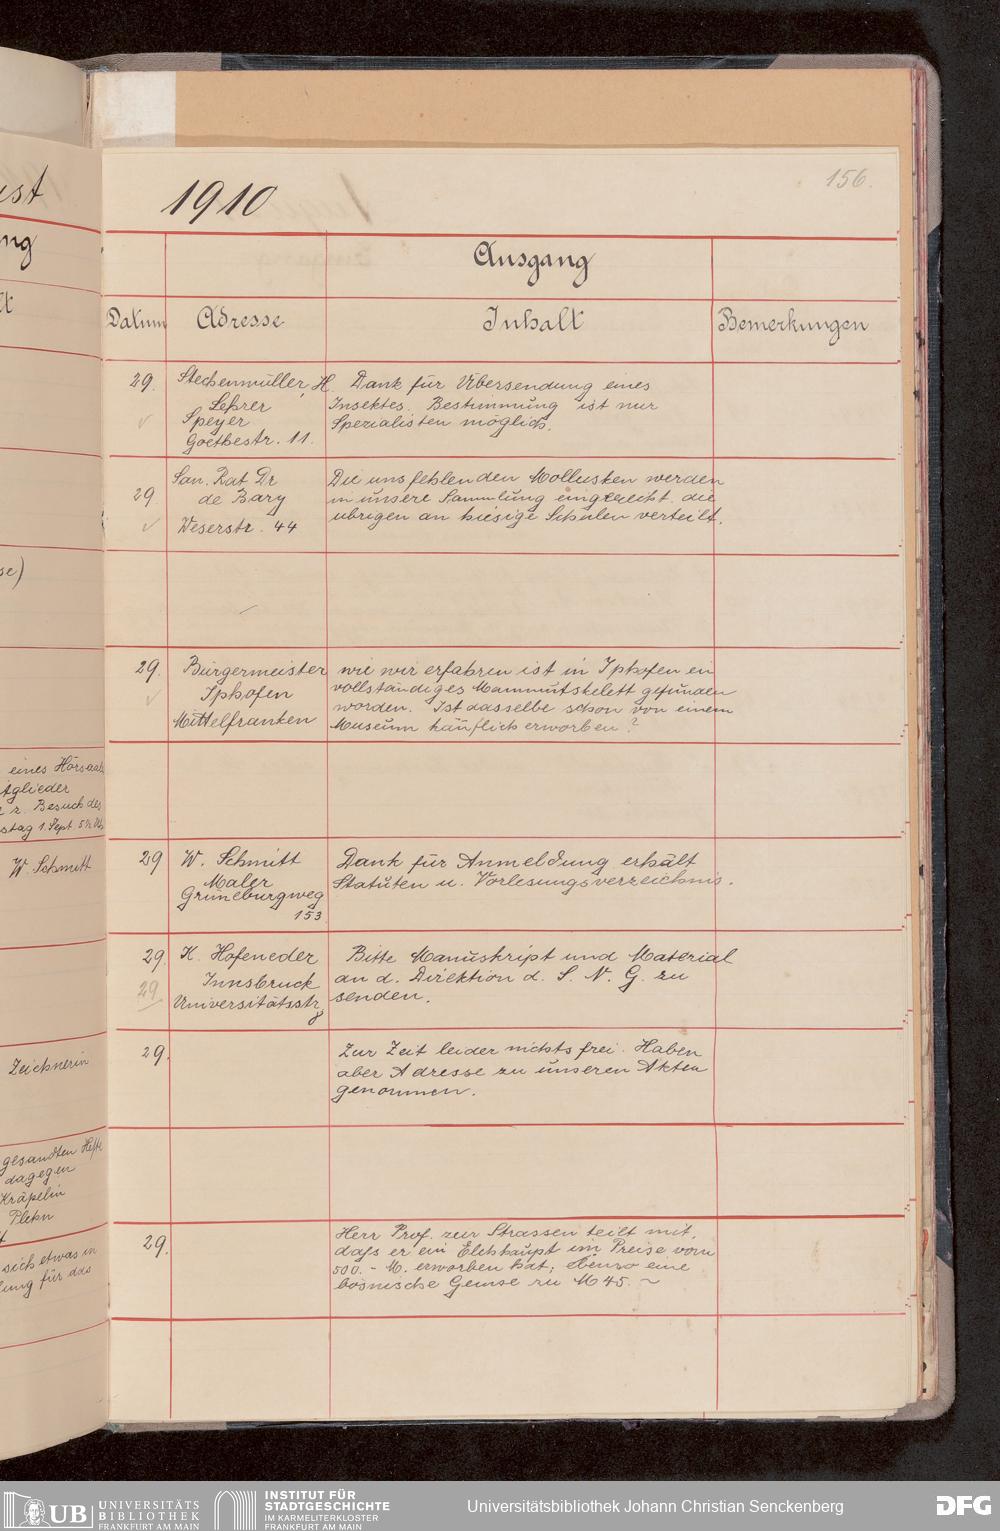 156.
1910
Ausgang
Datum Adresse Inhalt Bemerkungen
29. Stechenmüller, H. Dank für Übersendung eines
Lehrer Insektes. Bestimmung ist nur
Speyer Spezialisten möglich.
Goethestr. 11.
San. Rat Dr Die uns fehlenden Mollusken werden
29 de Bary in unsere Sammlung eingereiht, die
Weserstr. 44 übrigen an hiesige Schulen verteilt.
29. Bürgermeister wie wir erfahren ist in Iphofen ein
Iphofen vollständiges Mammutskelett gefunden
Mittelfranken worden. Ist dasselbe schon von einem
Museum käuflich erworben?
29 W. Schmitt Dank für Anmeldung erhält
Maler Statuten u. Vorlesungsverzeichnis.
Grüneburgweg
153
29. K. Hofeneder Bitte Manuskript und Material
29 Innsbruck an d. Direktion d. S. N. G. zu
Universitätsstr senden.
29. Zur Zeit leider nichts frei. Haben
aber Adresse zu unseren Akten
genommen.
29. Herr Prof. zur Strassen teilt mit,
dass er ein Elchhaupt im Preise vom
500.- M. erworben hat; ebenso eine
bosnische Gemse zu M 45. ~
ust
ng
lt
se)
eines Hörsaals
itglieder
z. Besuch des
stag 1. Sept. 5½ Uhr
W. Schmitt
Zeichnerin
gesandten Hefte
dagegen
Kräpelin
Plehn
sich etwas in
lung für das
UB UNIVERSITÄTS
BIBLIOTHEK
FRANKFURT AM MAIN
INSTITUT FÜR
STADTGESCHICHTE
IM KARMELITERKLOSTER
FRANKFURT AM MAIN
Universitätsbibliothek Johann Christian Senckenberg
DFG